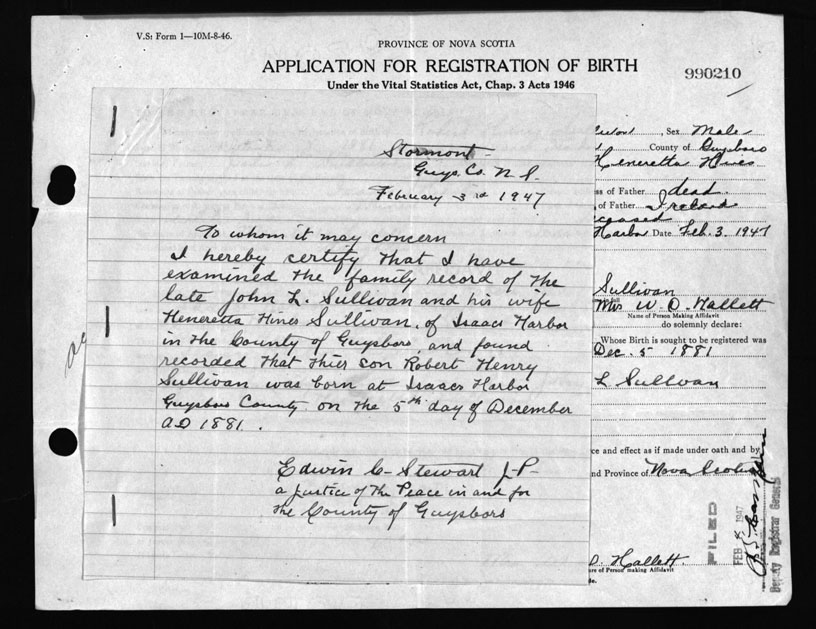 V.S: Form 1—10M-8-46.
PROVINCE OF NOVA SCOTIA
APPLICATION FOR REGISTRATION OF BIRTH
Under the Vital Statistics Act, Chap. 3 Acts 1946
990210
Stormont
Guys. Co. N.S.
February 3rd 1947
To whom it may concern
I hereby certify that I have
examined the family record of the
late John L. Sullivan and his wife
Heneretta Hines Sullivan, of Isaacs Harbor
in the County of Guysboro, and found
recorded that thier son Robert Henry
Sullivan was born at Isaacs Harbor
Guysboro County on the 5th day of December
A.D 1881.
Edwin C. Stewart J-P-
a justice of the Peace in and for
the County of Guysboro
, Sex Male
County of Guysboro
Heneretta Hines
ss of Father dead
of Father Ireland
ceased
Harbor Date Feb. 3. 1947
Sullivan
Mrs W. O. Hallett
Name of Person Making Affidavit
do solemnly declare:
Whose Birth is sought to be registered was
Dec. 5 1881
L Sullivan
ce and effect as if made under oath and by
nd Province of Nova Scotia
FILED
FEB 4 1947
Deputy Registrar General
O. Hallett.
ure of Person making Affidavit